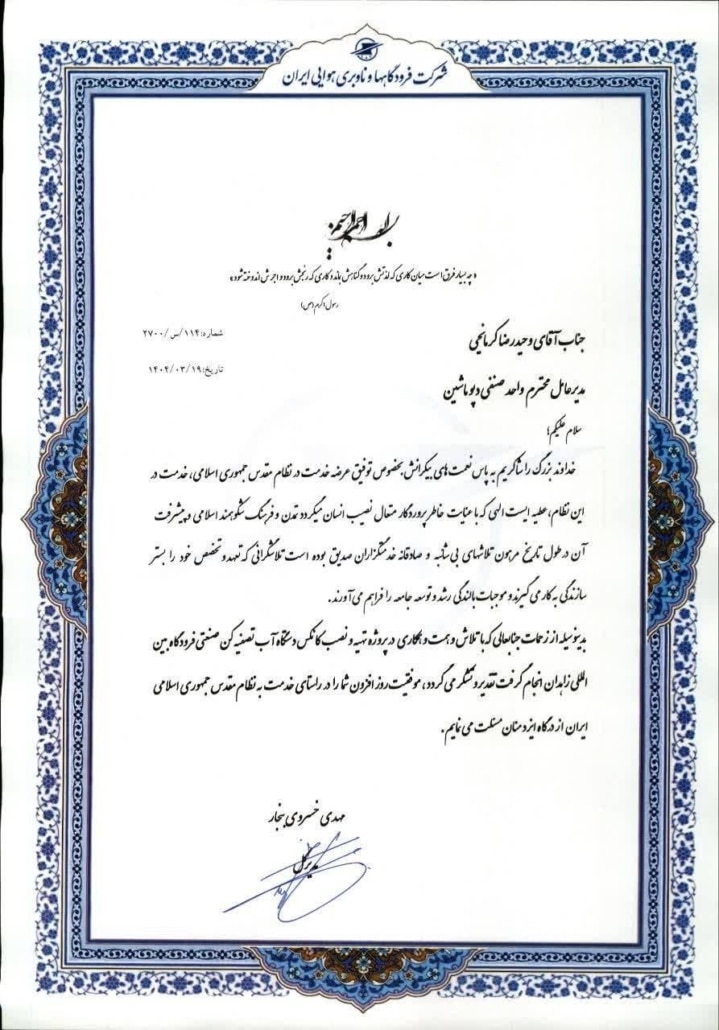 شرکت فرودگاهها و ناوبری هوایی ایران
بسم الله الرحمن الرحیم
«چه بسیار فرق است میان کاری که لذتش برود و گناهش بماند و کاری که رنجش برود و اجرش اندوخته شود»
رسول اکرم (ص)
شماره: ۱۱۴/س/۲۷۰۰
تاریخ: ۱۴۰۴/۰۳/۱۹
جناب آقای وحیدرضا کرمانجی
مدیرعامل محترم واحد صنفی دپو ماشین
سلام علیکم؛
خداوند بزرگ را شاکریم به پاس نعمت های بیکرانش بخصوص توفیق عرضه خدمت در نظام مقدس جمهوری اسلامی، خدمت در
این نظام، عطیه ایست الهی که با عنایت خاطر پروردگار متعال نصیب انسان میگردد تمدن و فرهنگ شکوهمند اسلامی و پیشرفت
آن در طول تاریخ مرهون تلاشهای بی شائبه و صادقانه خدمتگزاران صدیق بوده است تلاشگرانی که تعهد و تخصص خود را بستر
سازندگی به کار می گیرند و موجبات بالندگی رشد و توسعه جامعه را فراهم می آورند.
بدینوسیله از زحمات جنابعالی که با تلاش و همت و همکاری در پروژه تهیه و نصب کانکس دستگاه آب تصفیه کن صنعتی فرودگاه بین
المللی زاهدان انجام گرفت تقدیر و تشکر می گردد، موفقیت روز افزون شما را در راستای خدمت به نظام مقدس جمهوری اسلامی
ایران از درگاه ایزد منان مسئلت می نمایم.
مهدی خسروی بنجار
مدیرکل